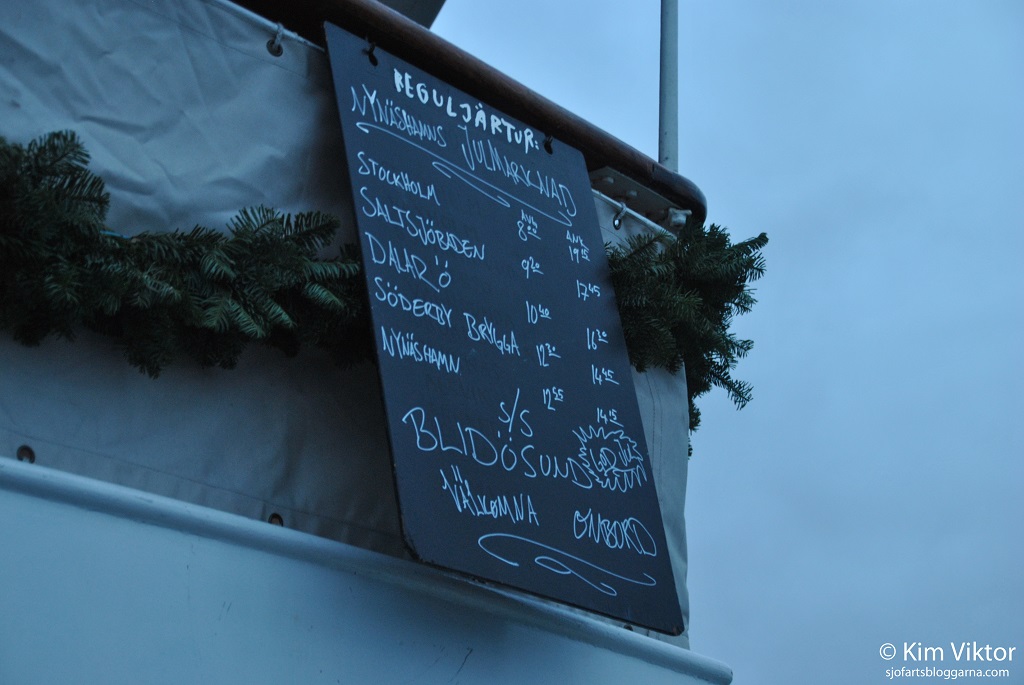 REGULJÄRTUR:
NYNÄSHAMNS JULMARKNAD
AVG ANK
STOCKHOLM 8:00 19:15
SALTSJÖBADEN 9:20 17:45
DALARÖ 10:40 16:20
SÖDERBY BRYGGA 12:30 14:45
NYNÄSHAMN 12:55 14:15
S/S
BLIDÖSUND GOD JUL
VÄLKOMNA OMBORD
© Kim Viktor
sjofartsbloggarna.com